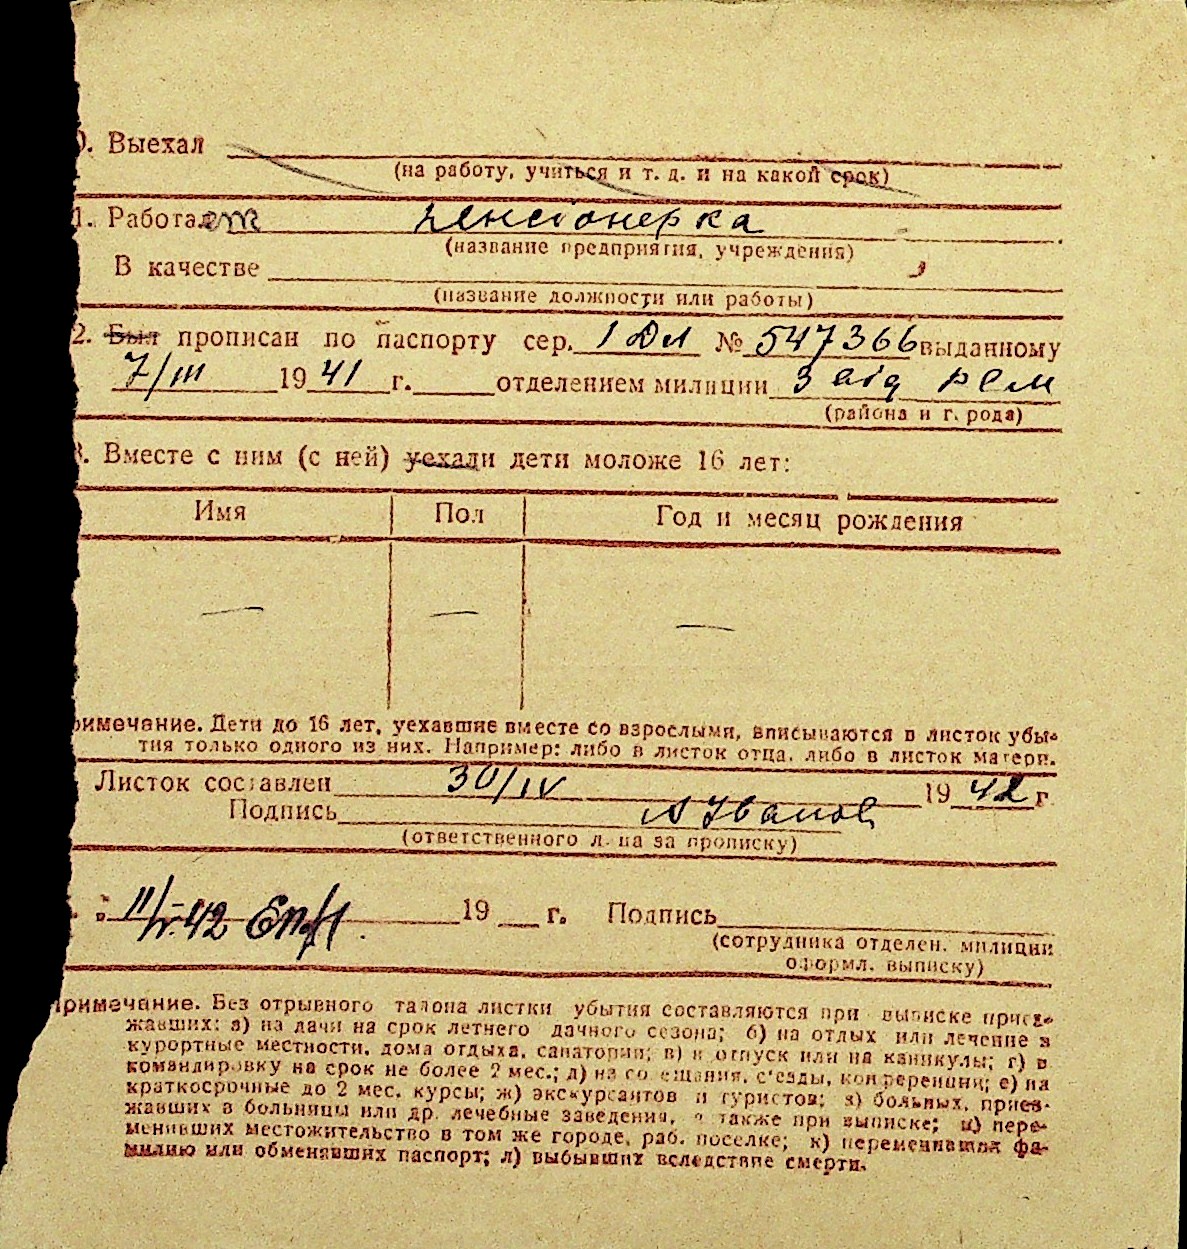 0. Выехал
(на работу, учиться и т. д. и на какой срок)
1. Работает пенсионерка
(название предприятия, учреждения)
В качестве
(название должности или работы)
2. Был прописан по паспорту сер. № 547366 выданному
7/III 1941 г. отделением милиции 3
(района и г. рода)
Вместе с ним (с ней) уехали дети моложе 16 лет:
Имя Пол Год и месяц рождения
— — —
римечание. Дети до 16 лет, уехавшие вместе со взрослыми, вписываются в листок убы-
тия только одного из них. Например: либо в листок отца, либо в листок матери.
Листок составлен 30/IV 1942 г
Подпись Иванов
(ответственного л. ца за прописку)
11/V-42 19 г. Подпись
(сотрудника отделен. милиции
оформл. выписку)
Примечание. Без отрывного талона листки убытия составляются при выписке приез-
жавших: а) на дачи на срок летнего дачного сезона; б) на отдых или лечение в
курортные местности, дома отдыха, санатории; в) в отпуск или на каникулы; г) в
командировку на срок не более 2 мес.; д) на со ещания, с'езды, конференции; е) на
краткосрочные до 2 мес. курсы; ж) экскурсантов и туристов; з) больных, приез-
жавших в больницы или др. лечебные заведения, а также при выписке; и) пере-
менивших местожительство в том же городе, раб. поселке; к) переменивших фа-
милию или обменявших паспорт; л) выбывших вследствие смерти.